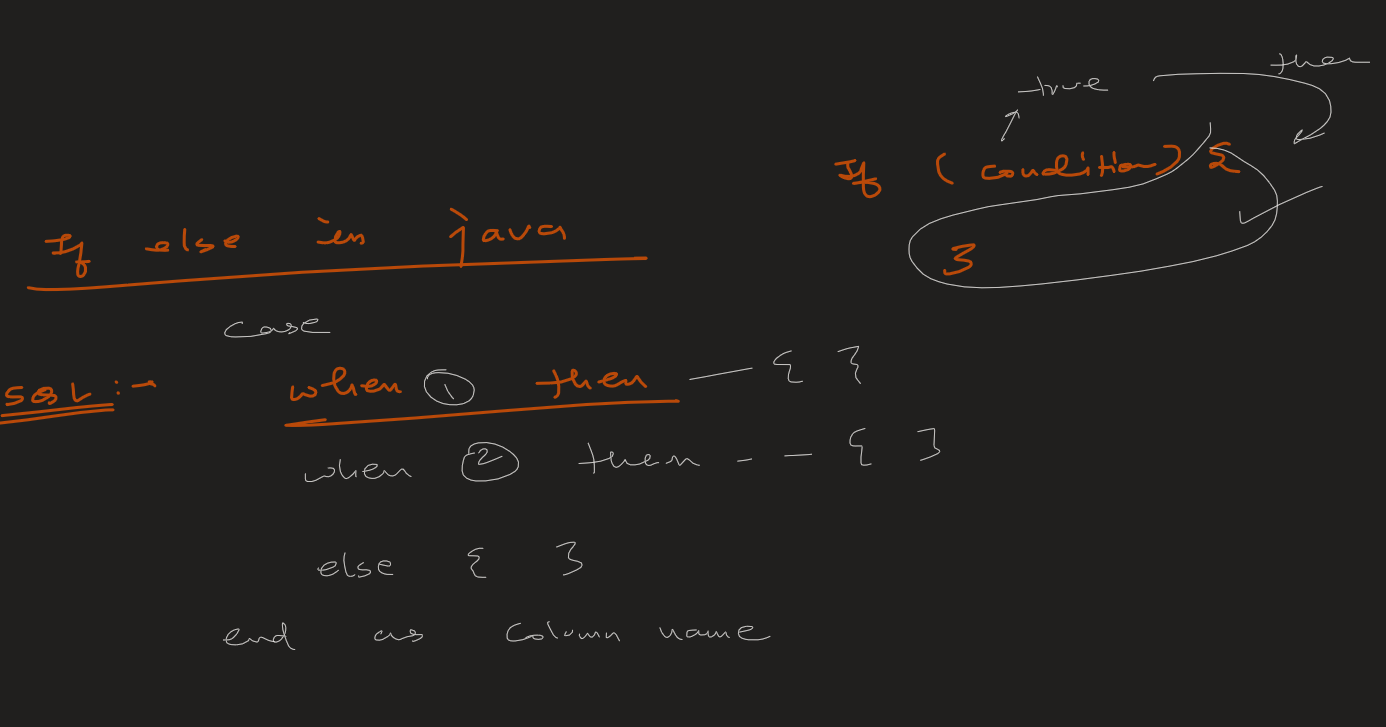 then
true
If (condition) {
}
If else in java
case
SQL :- when ① then — { }
when ② then - - { }
else { }
end as column name